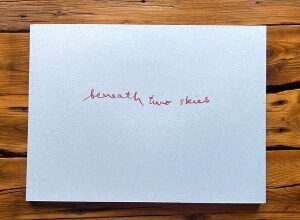 beneath two skies